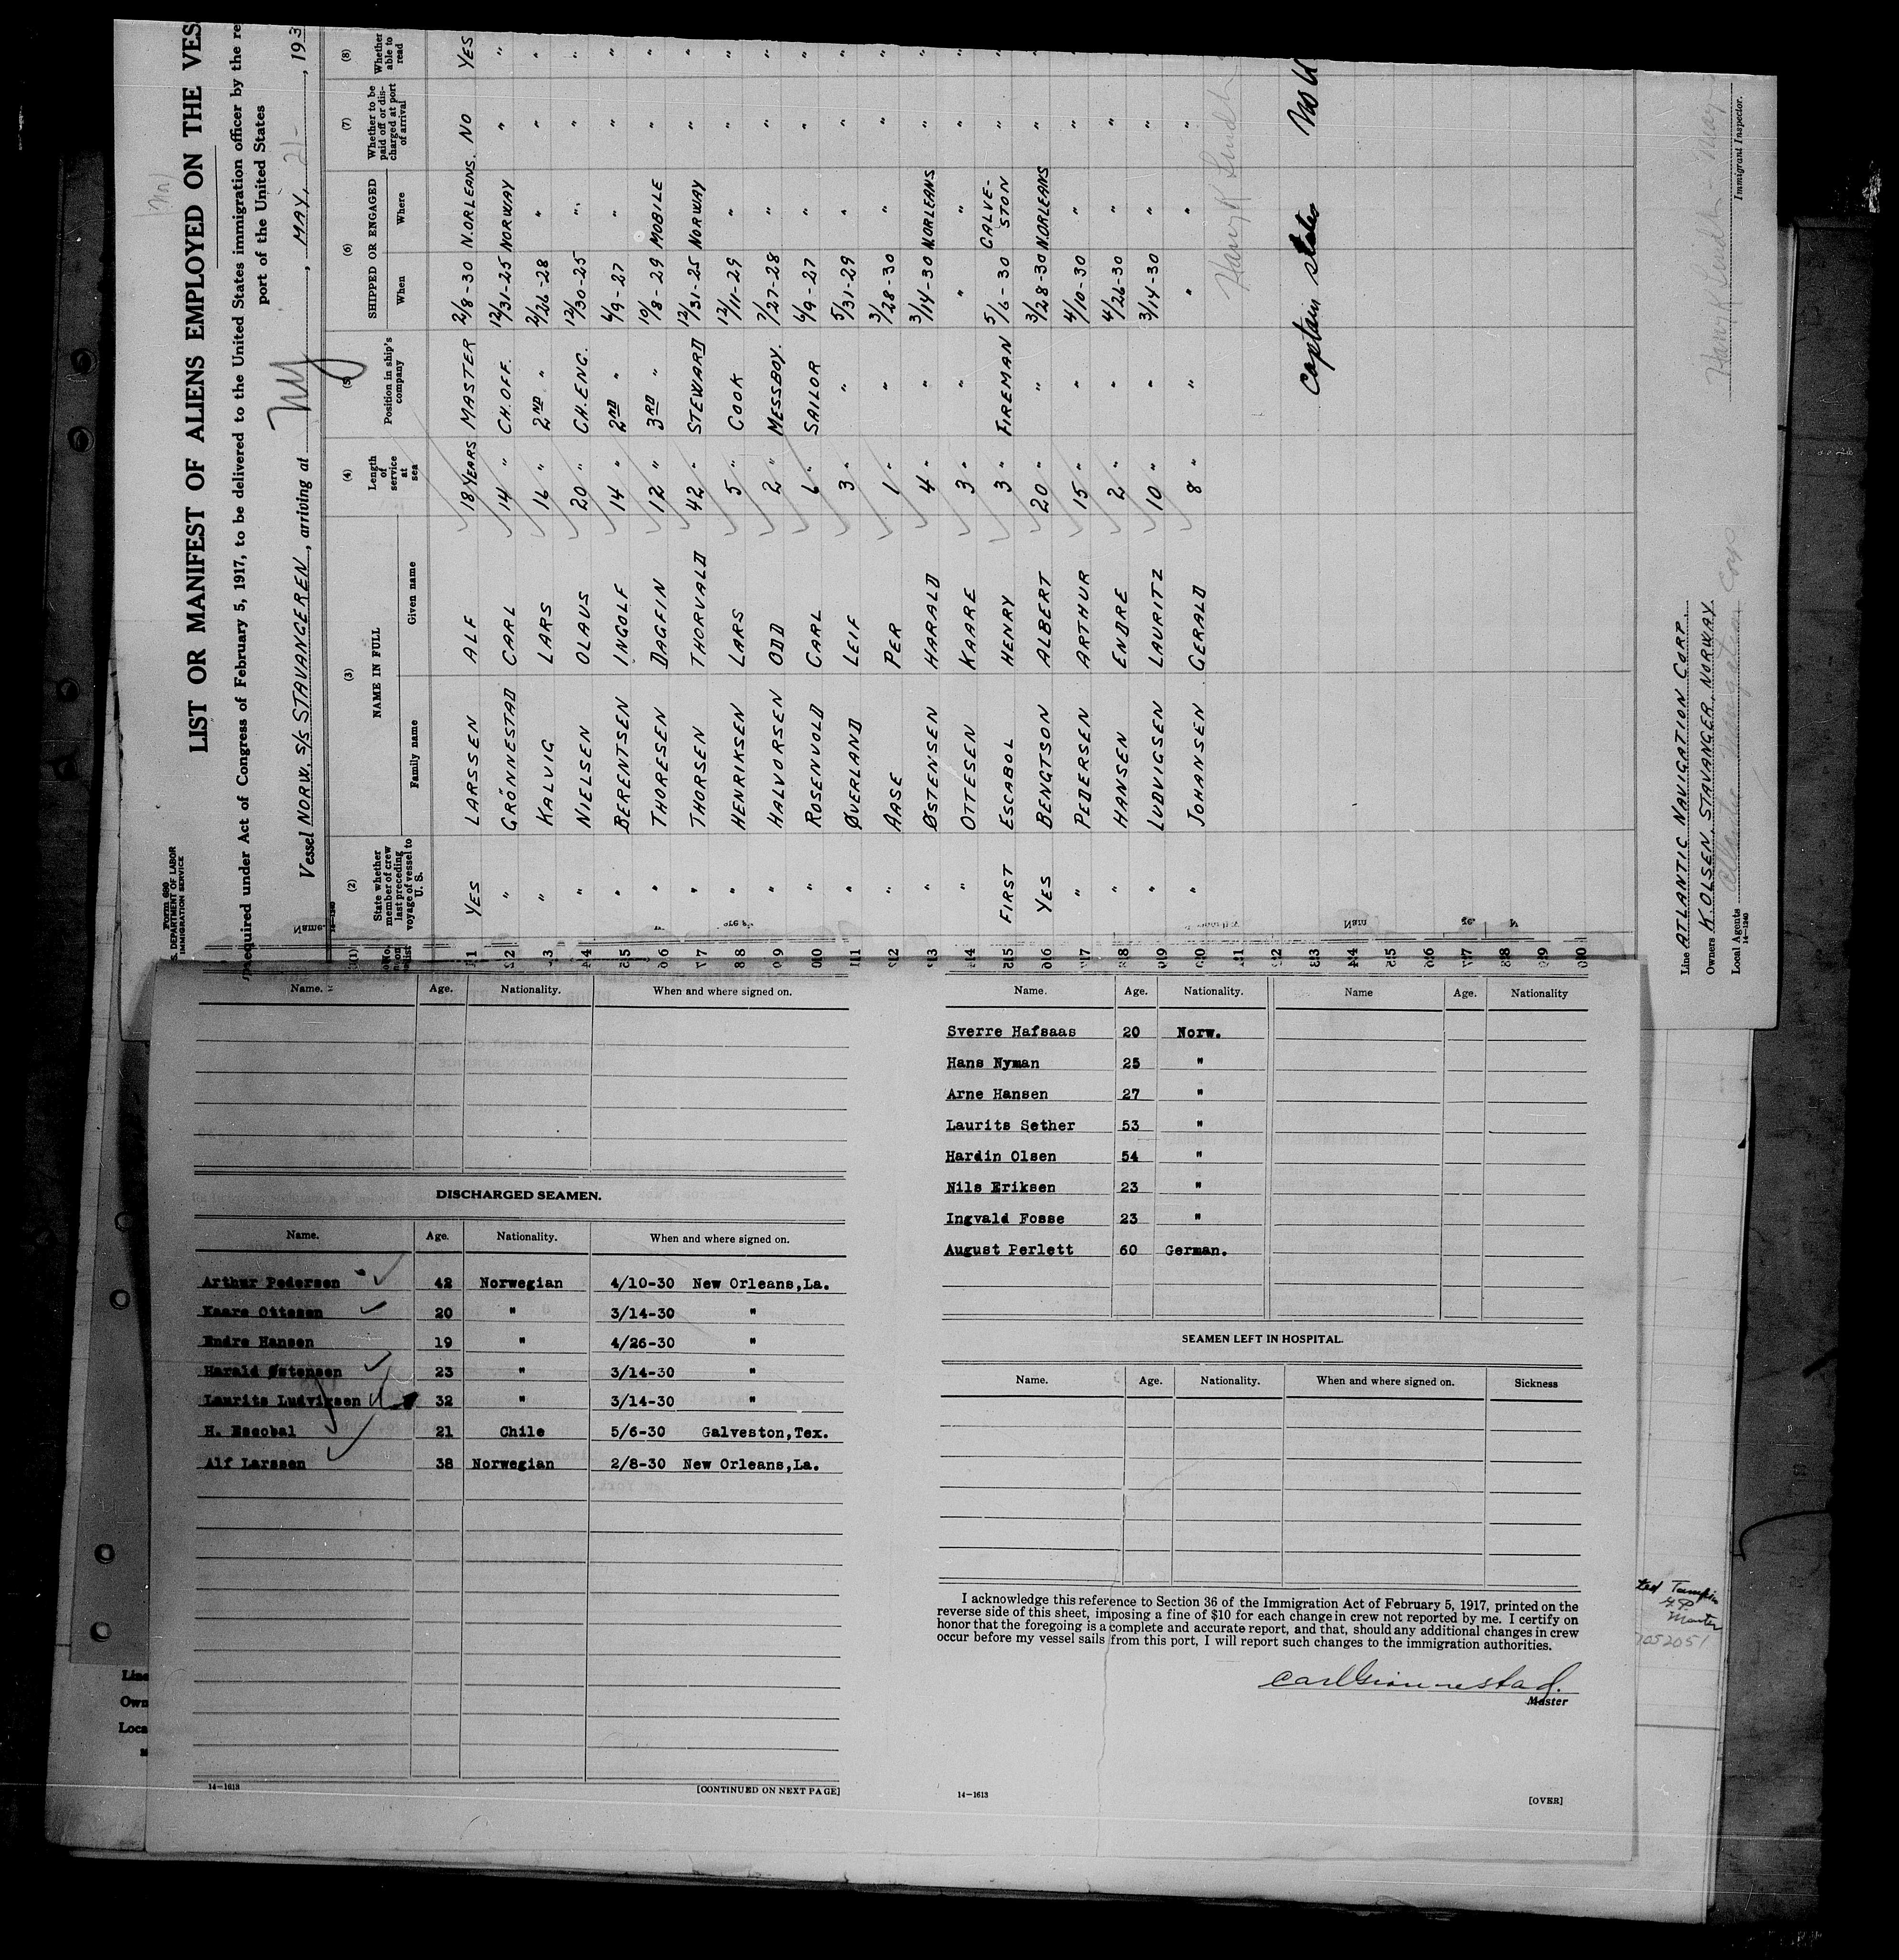 Form 690
S. DEPARTMENT OF LABOR
IMMIGRATION SERVICE
LIST OR MANIFEST OF ALIENS EMPLOYED ON THE VES
equired under Act of Congress of February 5, 1917, to be delivered to the United States immigration officer by the re
port of the United States
Vessel NORW. S/S STAVANGEREN, arriving at NY, MAY, 21-, 193
(1) (2) (3) (4) (5) (6) (7) (8)
State whether member of crew last preceding voyage of vessel to U. S. | NAME IN FULL | Length of service at sea | Position in ship's company | SHIPPED OR ENGAGED | Whether to be paid off or discharged at port of arrival | Whether able to read
Family name | Given name | When | Where
1 YES LARSSEN ALF 18 YEARS MASTER 2/8-30 N.ORLEANS. NO YES
2 " GRÖNNESTAD CARL 14 " CH.OFF. 12/31-25 NORWAY " "
3 " KALVIG LARS 16 " 2ND " 2/26-28 " " "
4 " NIELSEN OLAUS 20 " CH.ENG. 12/30-25 " " "
5 " BERENTSEN INGOLF 14 " 2ND " 4/9-27 " " "
6 " THORESEN DAGFIN 12 " 3RD " 10/8-29 MOBILE " "
7 " THORSEN THORVALD 42 " STEWARD 12/31-25 NORWAY " "
8 " HENRIKSEN LARS 5 " COOK 12/11-29 " " "
9 " HALVORSEN ODD 2 " MESSBOY. 7/27-28 " " "
10 " ROSENVOLD CARL 6 " SAILOR 6/9-27 " " "
11 " ØVERLAND LEIF 3 " " 5/31-29 " " "
12 " AASE PER 1 " " 3/28-30 " " "
13 " ØSTENSEN HARALD 4 " " 3/14-30 N.ORLEANS " "
14 " OTTESEN KAARE 3 " " " " " "
15 FIRST ESCABOL HENRY 3 " FIREMAN 5/6-30 GALVE-STON " "
16 YES BENGTSON ALBERT 20 " " 3/28-30 N.ORLEANS " "
17 " PEDERSEN ARTHUR 15 " " 4/10-30 " " "
18 " HANSEN ENDRE 2 " " 4/26-30 " " "
19 " LUDVIGSEN LAURITZ 10 " " 3/14-30 " "
20 " JOHANSEN GERALD 8 " " " " "
Captain states No
Line ATLANTIC NAVIGATION CORP.
Owners K. OLSEN, STAVANGER, NORWAY.
Local Agents
14-1240
Immigrant Inspector.
Name. | Age. | Nationality. | When and where signed on.
DISCHARGED SEAMEN.
Name. | Age. | Nationality. | When and where signed on.
Arthur Pedersen 42 Norwegian 4/10-30 New Orleans,La.
Kaare Ottesen 20 " 3/14-30 "
Endre Hansen 19 " 4/26-30 "
Harald Østensen 23 " 3/14-30 "
Laurits Ludvigsen 32 " 3/14-30 "
H. Escobal 21 Chile 5/6-30 Galveston,Tex.
Alf Larssen 38 Norwegian 2/8-30 New Orleans,La.
14-1613
[CONTINUED ON NEXT PAGE]
Name. | Age. | Nationality. | Name | Age. | Nationality
Sverre Hafsaas 20 Norw.
Hans Nyman 25 "
Arne Hansen 27 "
Laurits Sether 53 "
Hardin Olsen 54 "
Nils Eriksen 23 "
Ingvald Fosse 23 "
August Perlett 60 German.
SEAMEN LEFT IN HOSPITAL.
Name. | Age. | Nationality. | When and where signed on. | Sickness
I acknowledge this reference to Section 36 of the Immigration Act of February 5, 1917, printed on the
reverse side of this sheet, imposing a fine of $10 for each change in crew not reported by me. I certify on
honor that the foregoing is a complete and accurate report, and that, should any additional changes in crew
occur before my vessel sails from this port, I will report such changes to the immigration authorities.
Carl Grönnestad.
Master
14-1613
[OVER]
Line
Own
Loca